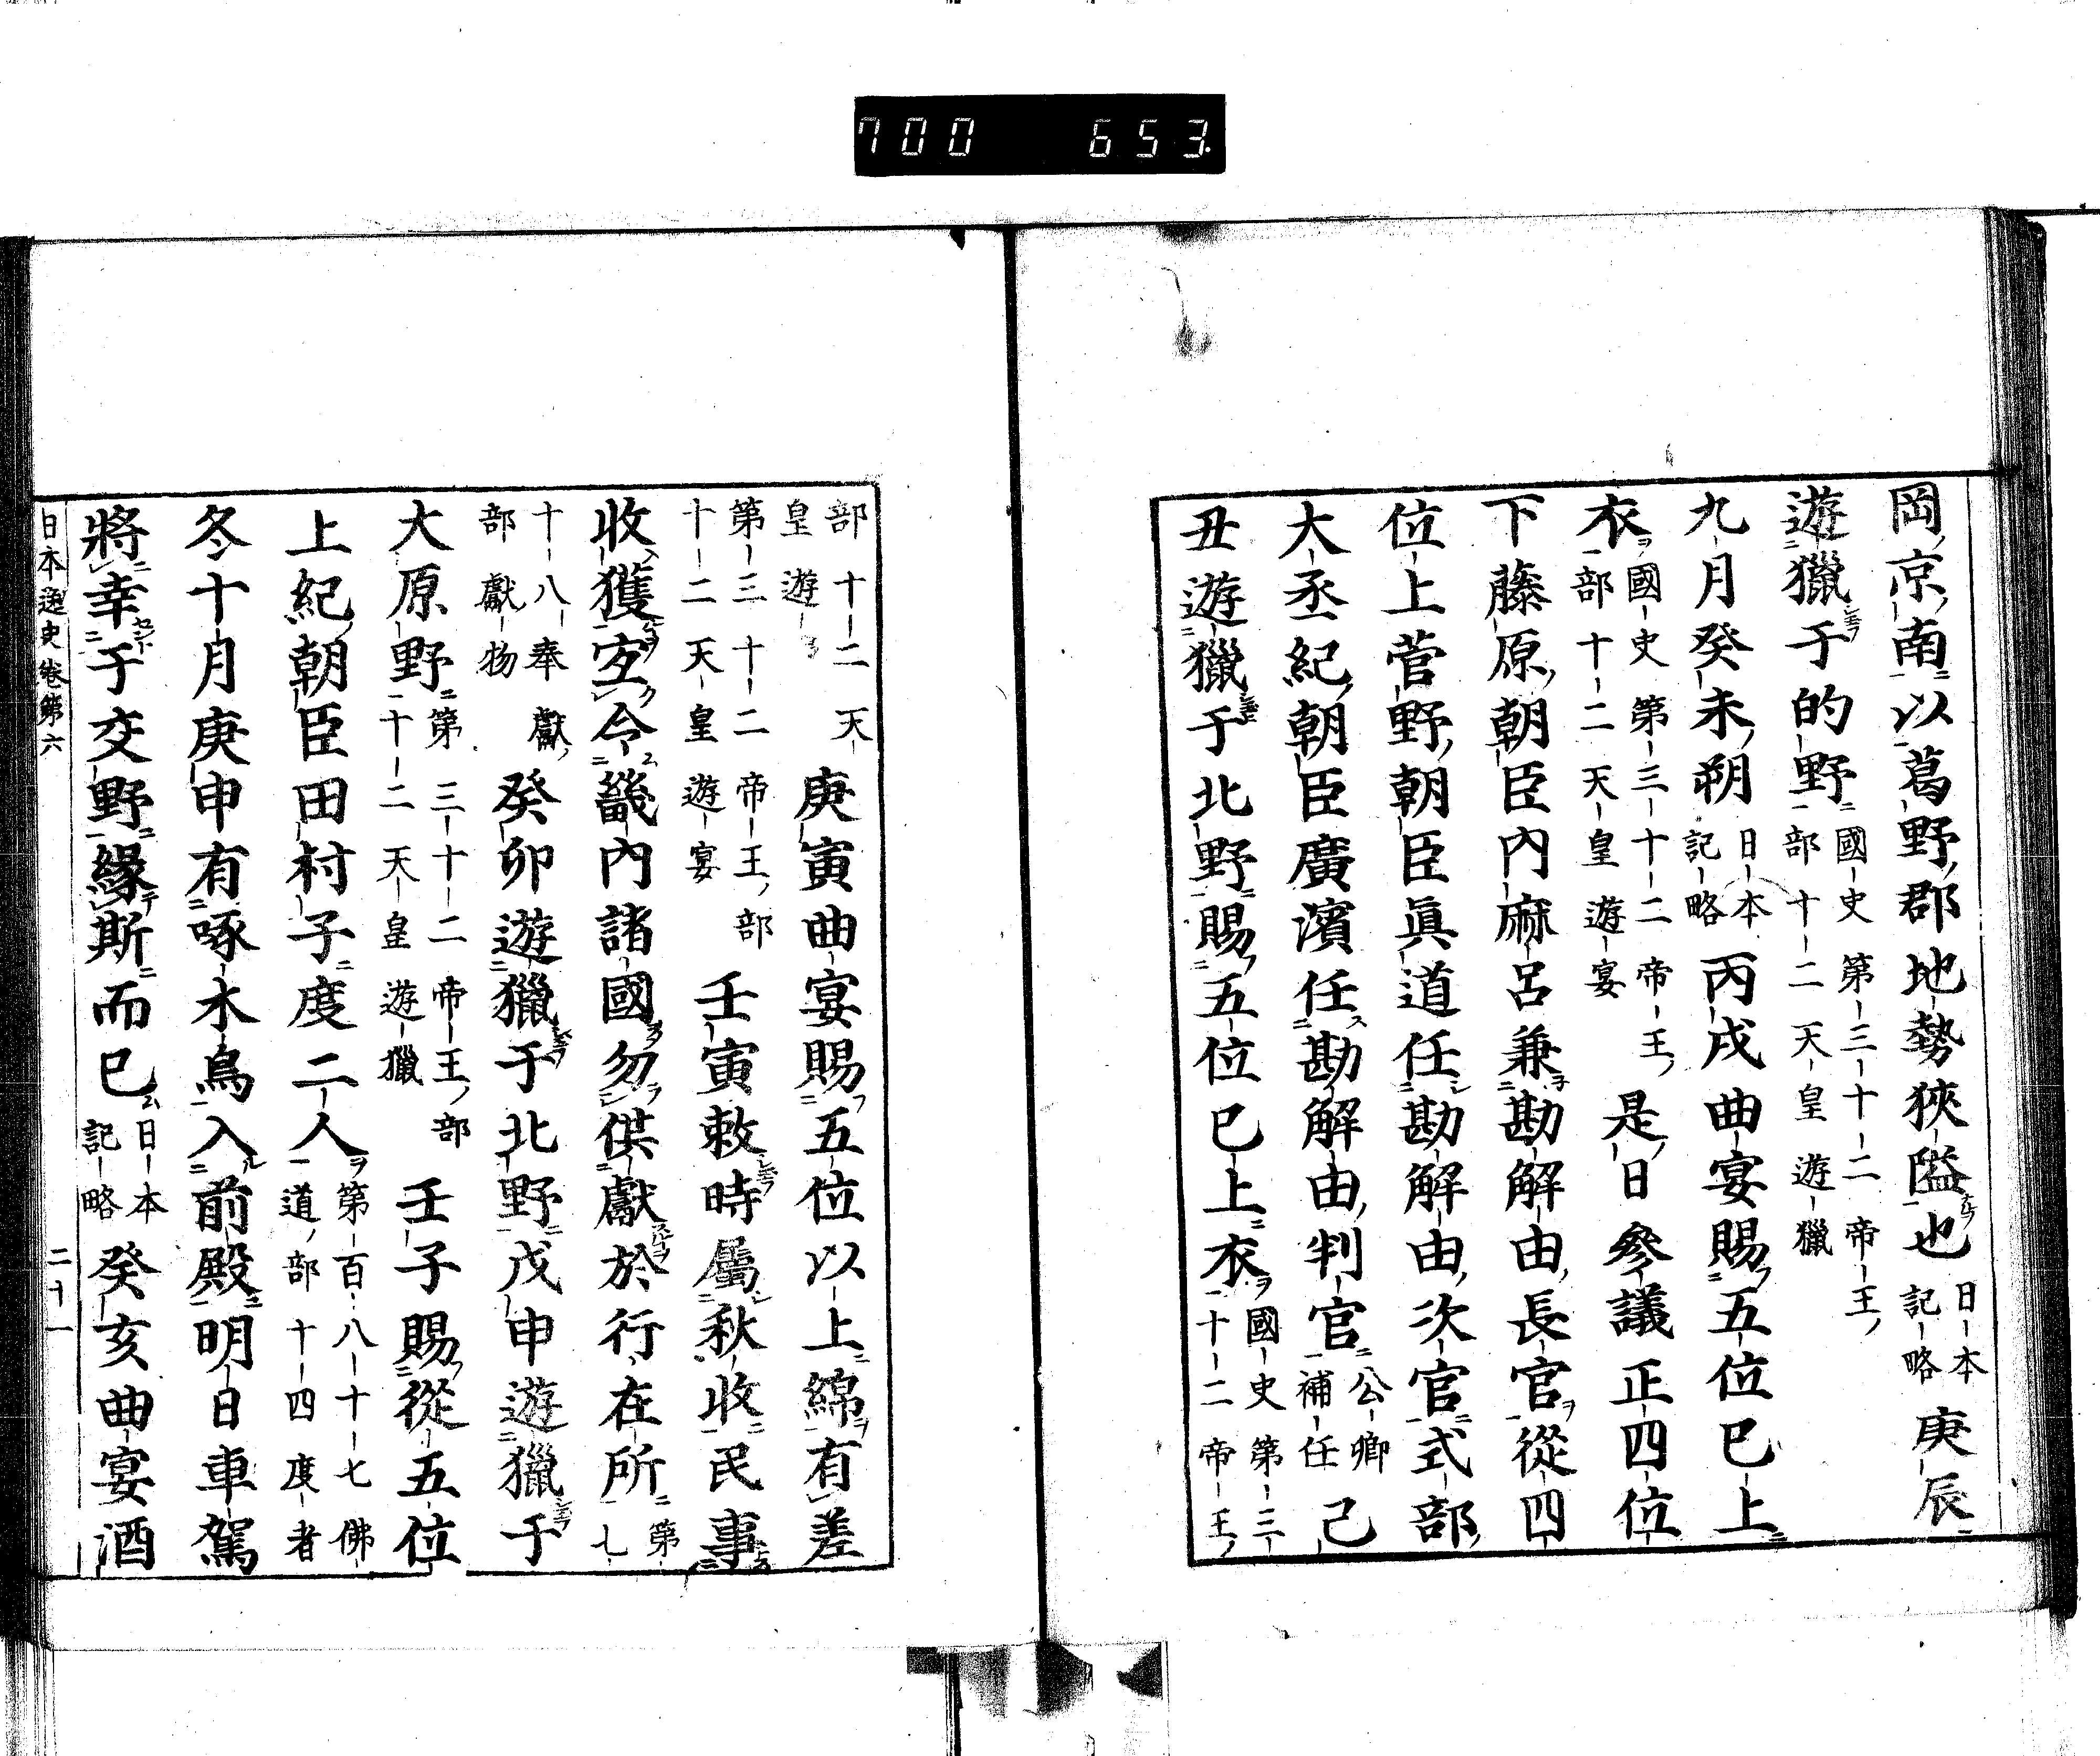 700 653.
岡京南以葛野郡地勢狹隘也日本記略庚辰
遊獵于的野國史第三十二帝王部十二天皇遊獵
九月癸未朔日本記略丙戌曲宴賜五位已上
衣國史第三十二帝王部十二天皇遊宴是日參議正四位
下藤原朝臣内麻呂兼勘解由長官從四
位上菅野朝臣眞道任勘解由次官式部
大丞紀朝臣廣濱任勘解由判官公卿補任己
丑遊獵于北野賜五位已上衣國史第三十二帝王
部十二天皇遊庚寅曲宴賜五位以上綿有差
第三十二帝王部十二天皇遊宴壬寅敕時屬秋收民事
收獲宜令畿内諸國勿供獻於行在所第七
十八奉獻部獻物癸卯遊獵于北野戊申遊獵于
大原野第三十二帝王部十二天皇遊獵壬子賜從五位
上紀朝臣田村子度二人第百八十七佛道部十四度者
冬十月庚申有啄木鳥入前殿明日車駕
將幸于交野緣斯而已日本記略癸亥曲宴酒
日本逸史卷第六 二十一